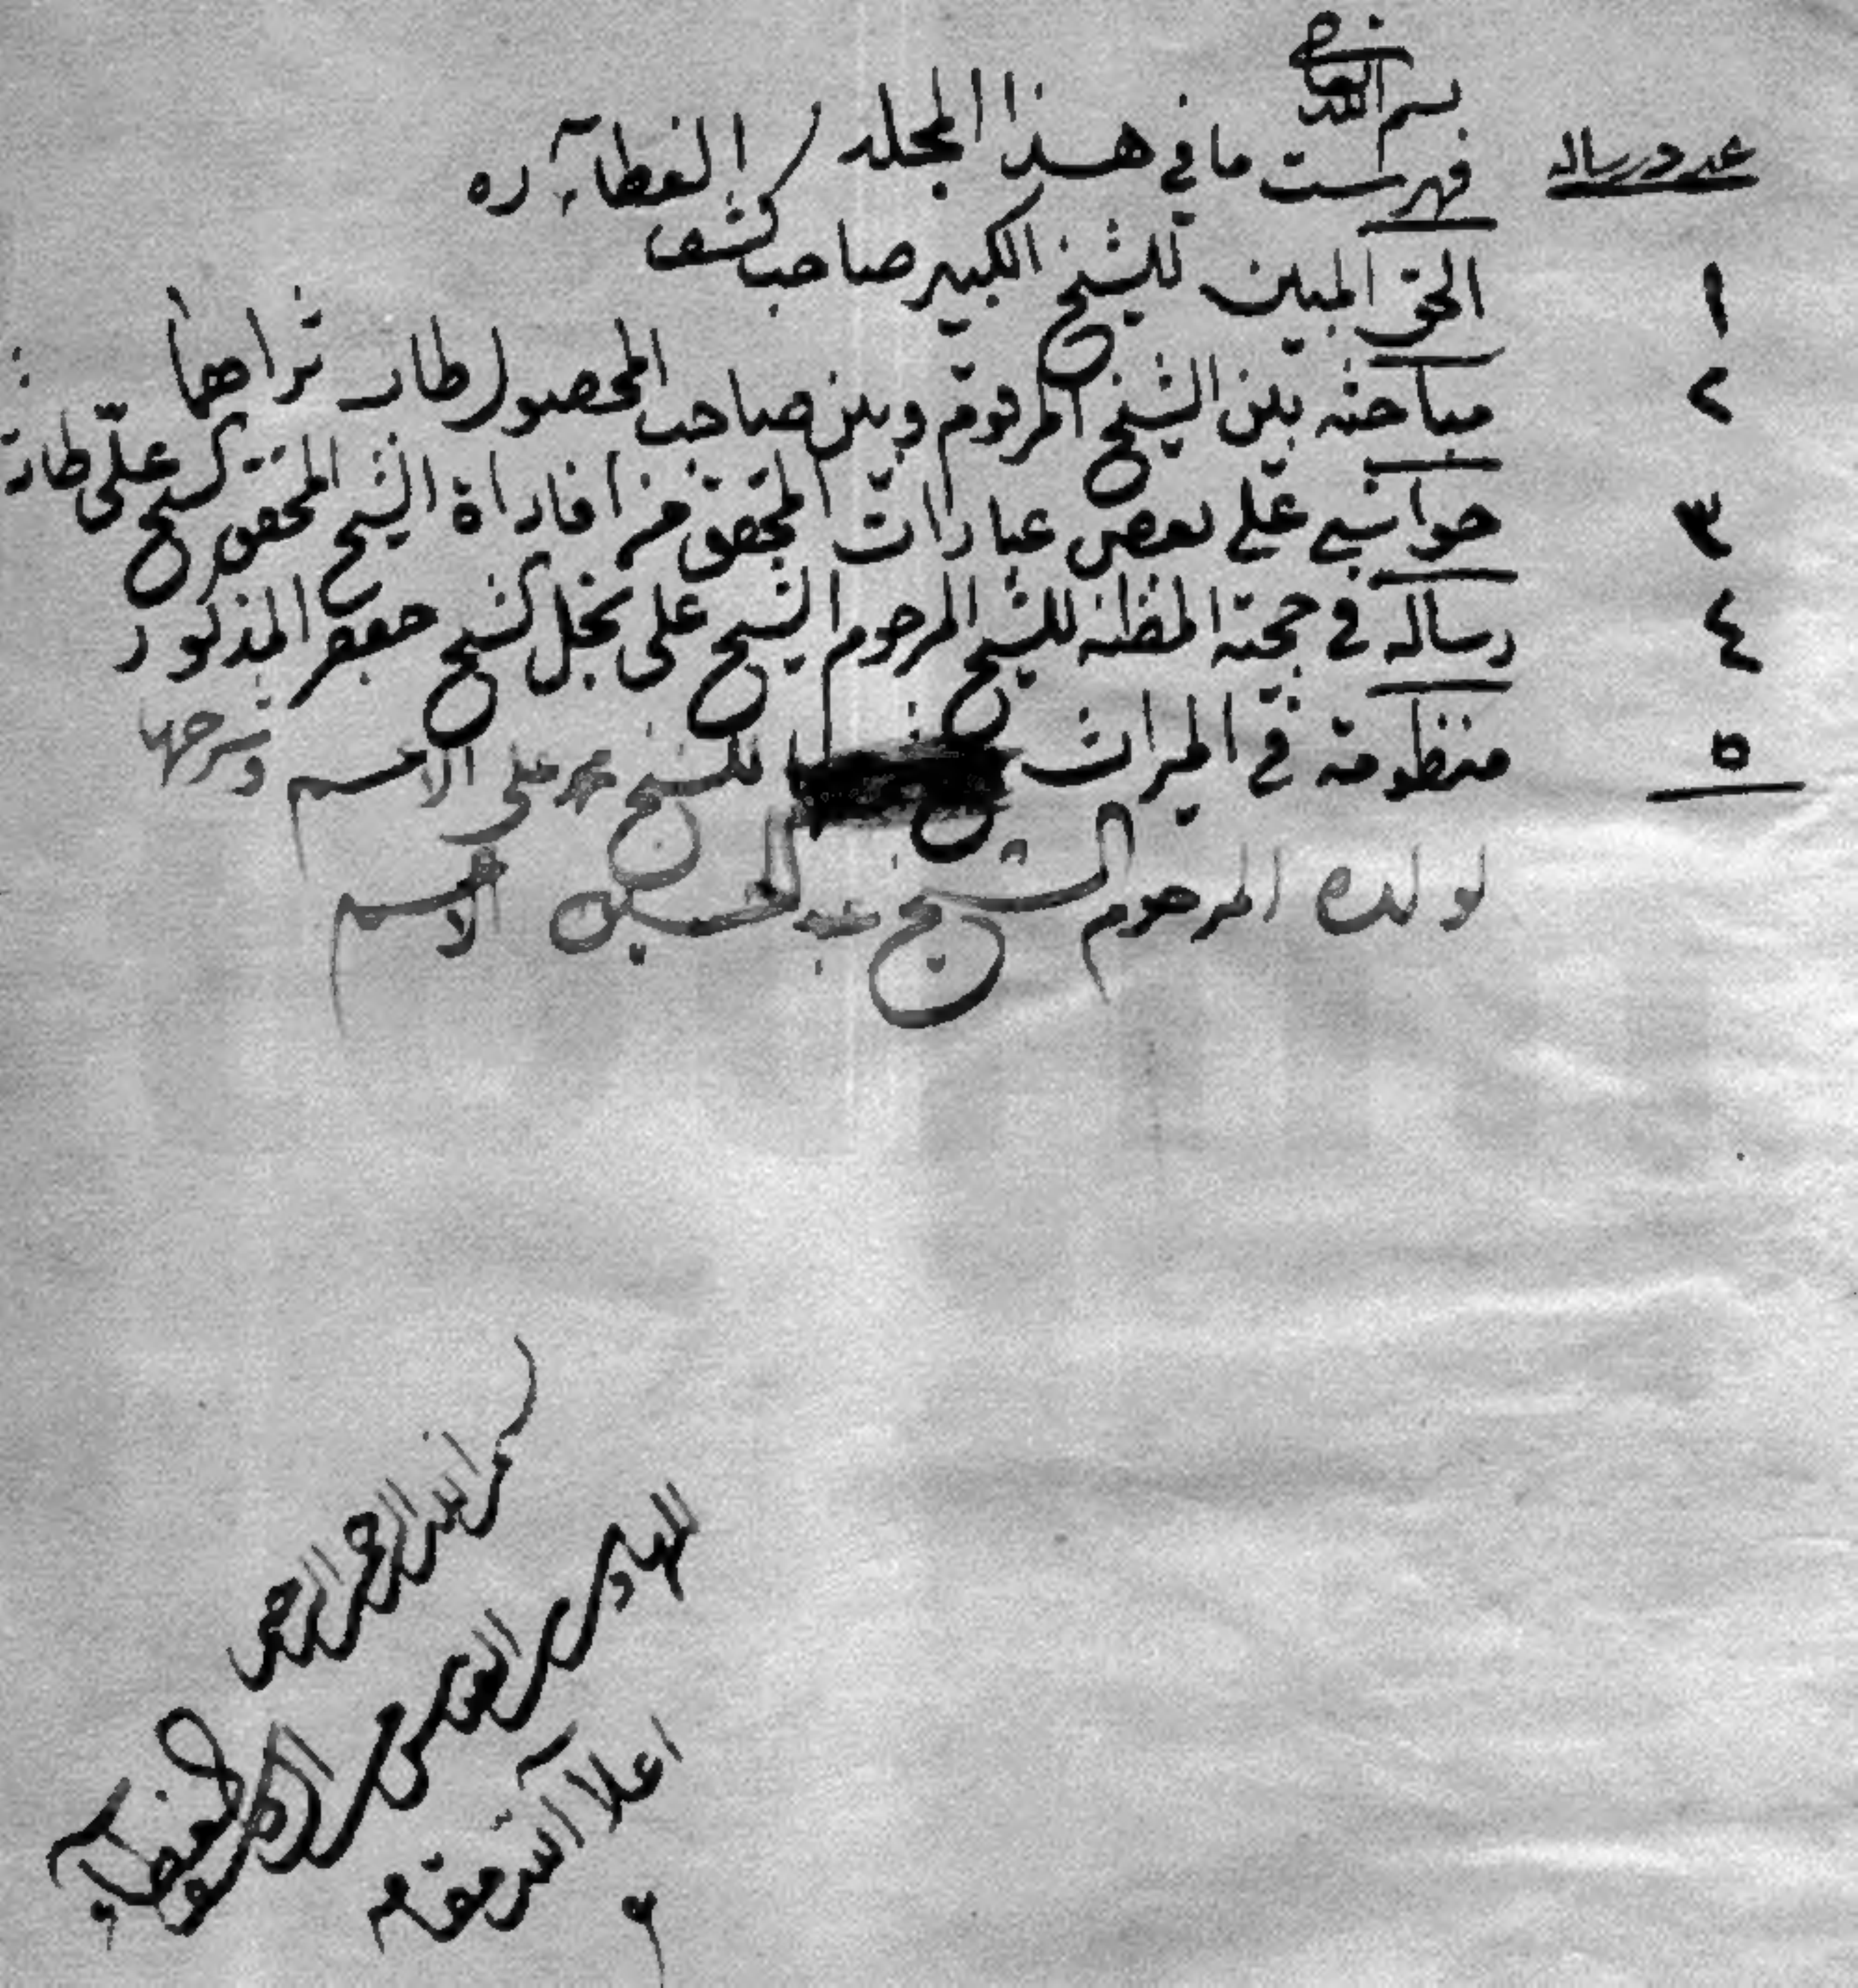 بسم الله تعالى
عدد رساله فهرست ما في هذا المجلد
١ الحق المبين للشيخ الكبير صاحب كشف الغطاء ره
٢ مباحثه بين الشيخ المرقوم وبين صاحب المحصول طاب ثراهما
٣ حواشي على بعض عبارات المحقق من افاداة الشيخ المحقق الشيخ علي طاب
٤ رساله في حجية المظنه للشيخ المرحوم الشيخ على نجل الشيخ جعفر المذكور
٥ منظومة في الميراث للشيخ محمد علي الاعسم وشرحها
لولده المرحوم الشيخ عبد الحسين الاعسم
بسم الله الرحمن الرحيم
للهادي العباس كاشف الغطاء
اعلا الله مقامه